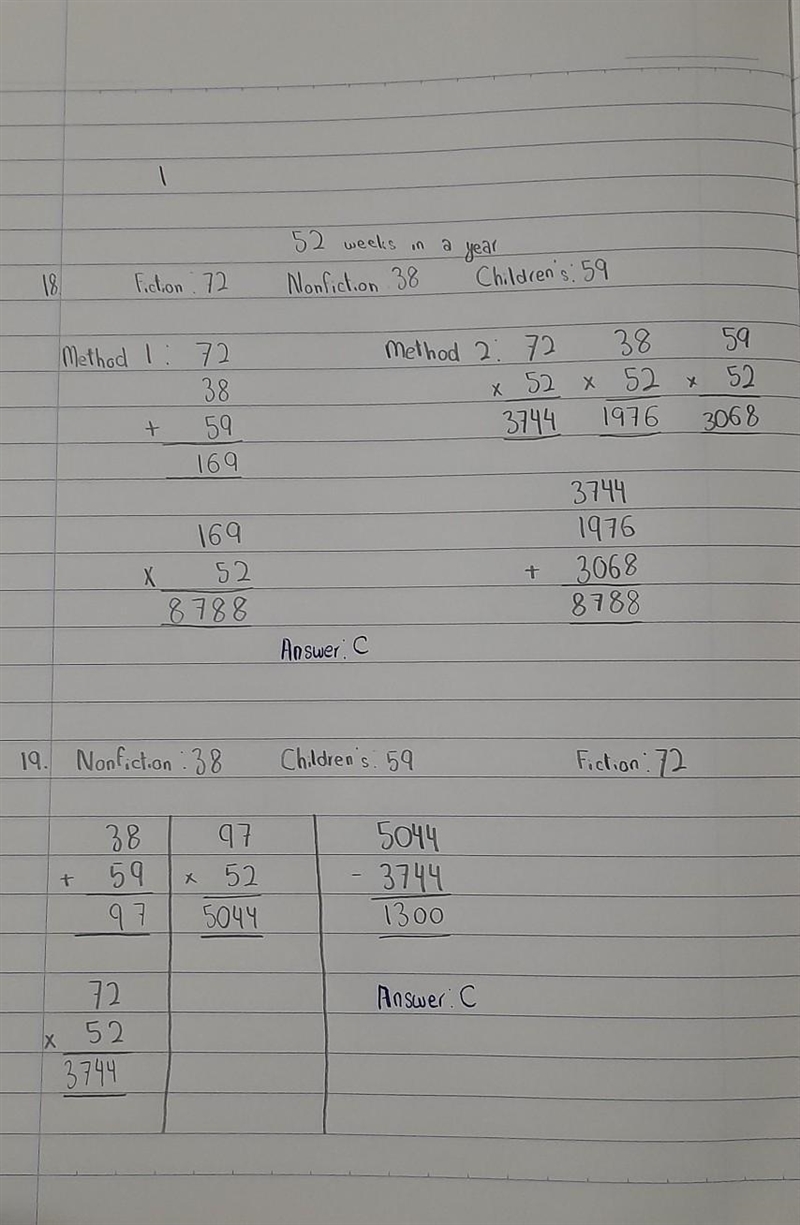 52 weeks in a year
18. Fiction: 72 Nonfiction 38 Children's: 59
Method 1: 72
38
+ 59
169
169
x 52
8788
Method 2: 72 38 59
x 52 x 52 x 52
3744 1976 3068
3744
1976
+ 3068
8788
Answer: C
19. Nonfiction: 38 Children's: 59 Fiction: 72
38
+ 59
97
72
x 52
3744
97
x 52
5044
5044
- 3744
1300
Answer: C